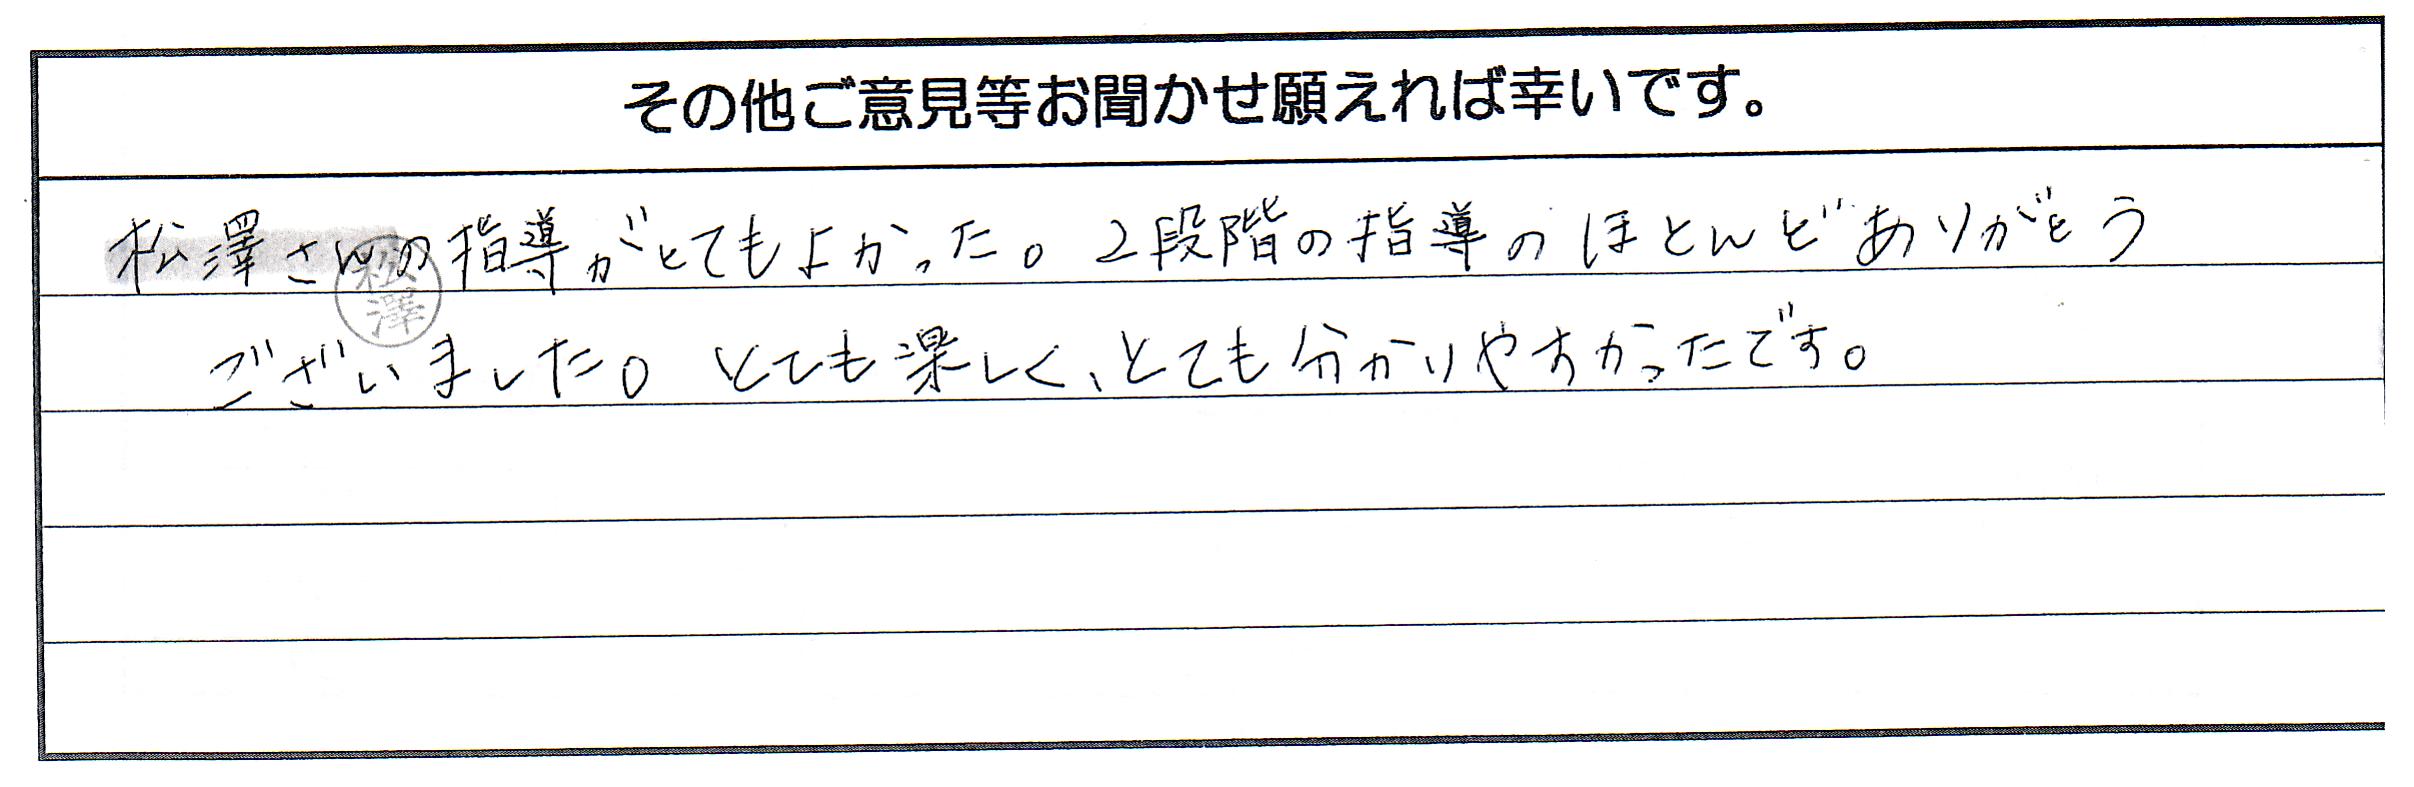 その他ご意見等お聞かせ願えれば幸いです。
松澤さんの指導がとてもよかった。2段階の指導のほとんどありがとう
松澤
ございました。とても楽しく、とても分かりやすかったです。